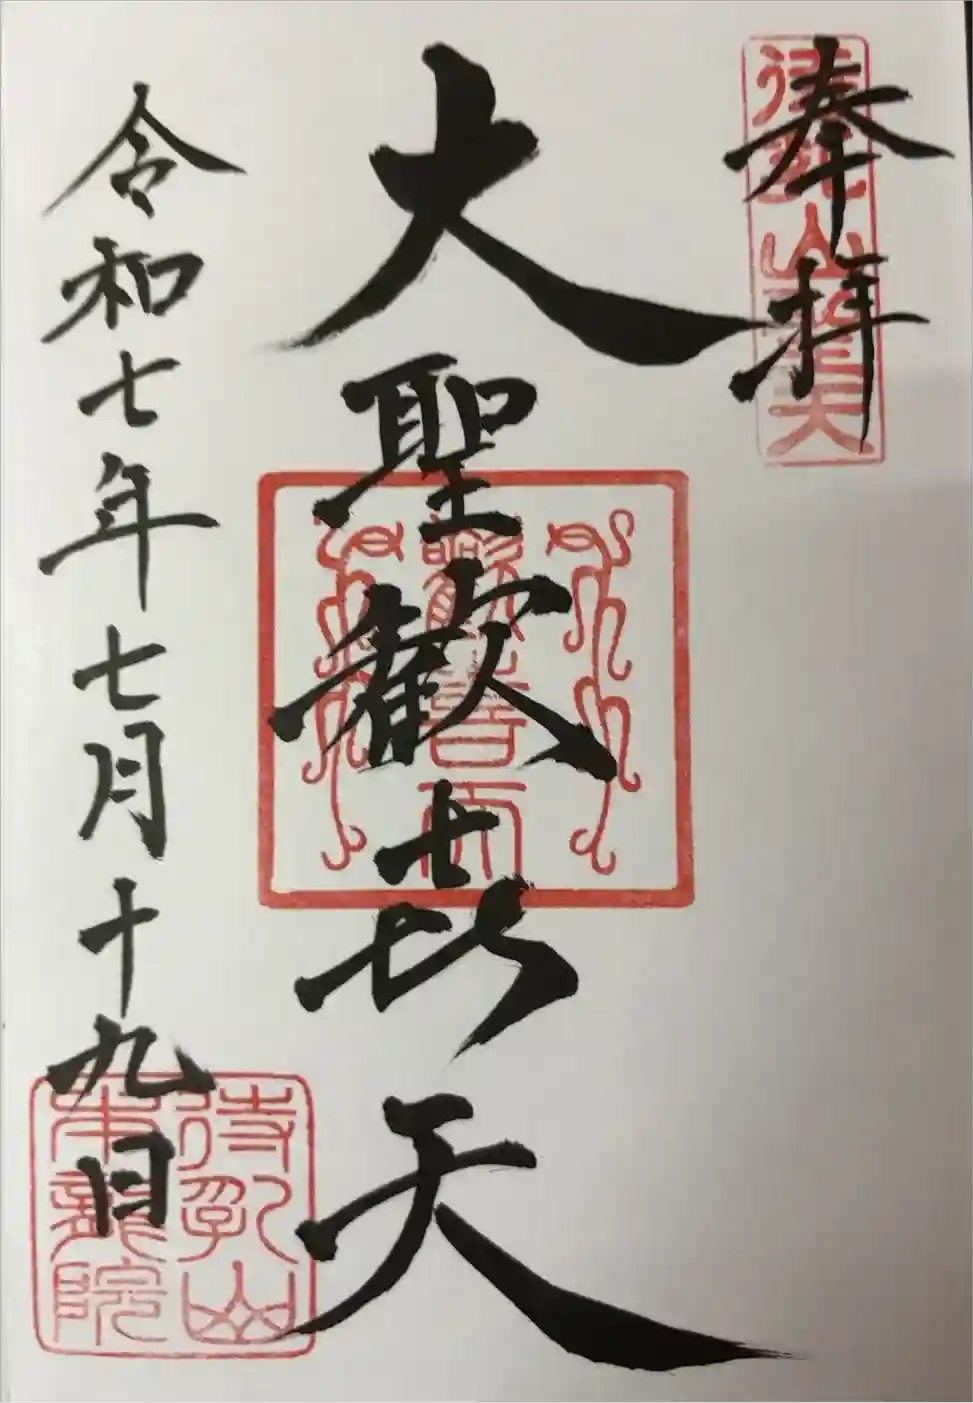 奉拝
待乳山聖天
大聖歓喜天
歓喜天
令和七年七月十九日
待乳山
本龍院